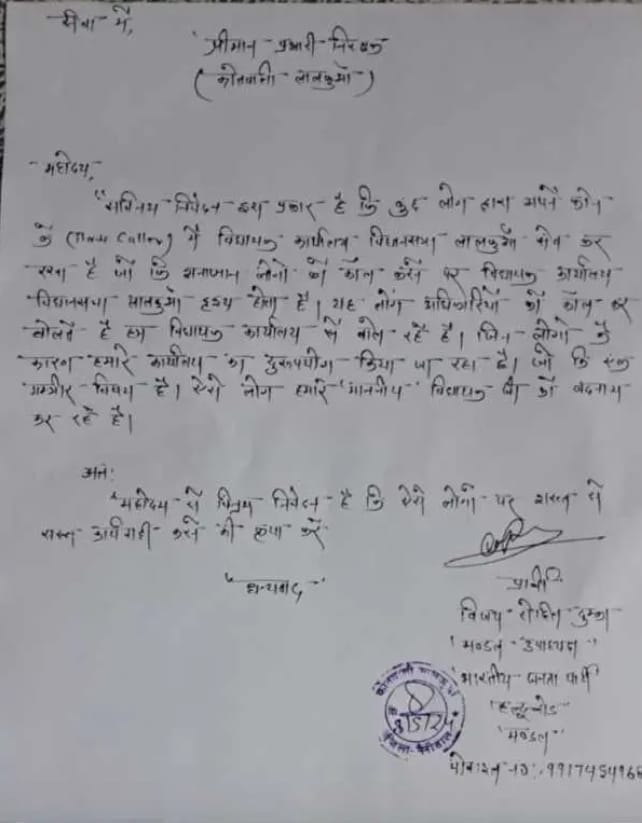 सेवा में,
श्रीमान प्रभारी निरीक्षक
(कोतवाली लालकुआँ)
महोदय,
"सविनय निवेदन इस प्रकार है कि कुछ लोग द्वारा अपने फोन
के (True Caller) में विधायक कार्यालय विधानसभा लालकुआँ सेव कर
रखा है जो कि अनजान लोगो को कॉल करने पर विधायक कार्यालय
विधानसभा लालकुआँ दृश्य होता है। यह लोग अधिकारियों को कॉल कर
बोलते है हम विधायक कार्यालय से बोल रहे है। जिन लोगो के
कारण हमारे कार्यालय का दुरुपयोग किया जा रहा है। जो कि एक
गम्भीर विषय है। ऐसे लोग हमारे 'माननीय' विधायक जी को बदनाम
कर रहे है।
अतः
"महोदय से विनम्र निवेदन है कि ऐसे लोगो पर सख्त से
सख्त कार्यवाही करने की कृपा करें
"धन्यवाद"
प्रार्थी
विजय
'मण्डल उपाध्यक्ष'
'भारतीय जनता पार्टी'
'हल्दूचौड़'
'मण्डल'
मोबाइल न०:
कोतवाली लालकुआँ
जिला-नैनीताल